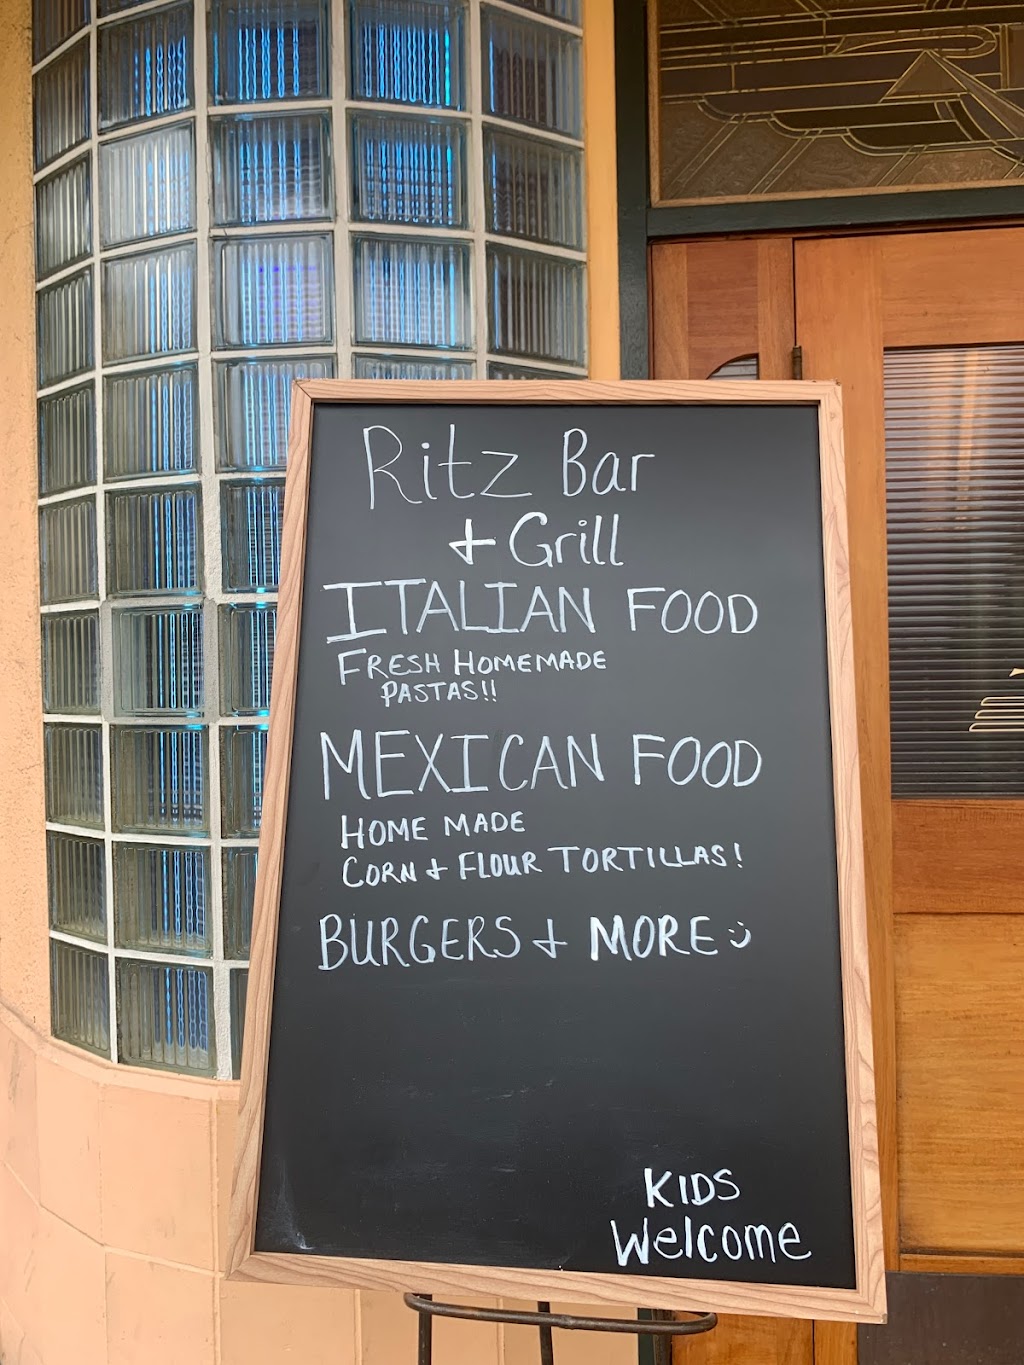 Ritz Bar
+ Grill
ITALIAN FOOD
FRESH HOMEMADE
PASTAS!!
MEXICAN FOOD
HOME MADE
CORN + FLOUR TORTILLAS!
BURGERS + MORE :)
KIDS
Welcome